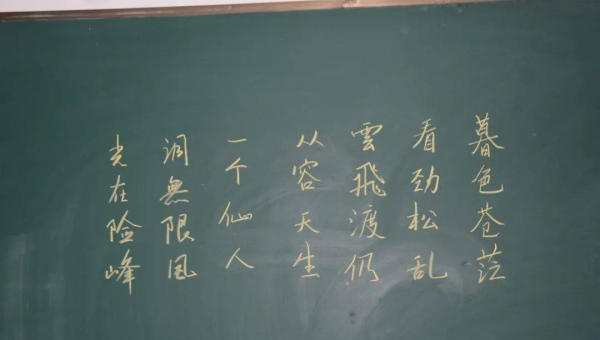 暮色苍茫
看劲松乱
雲飛渡仍
从容天生
一个仙人
洞無限风
光在险峰